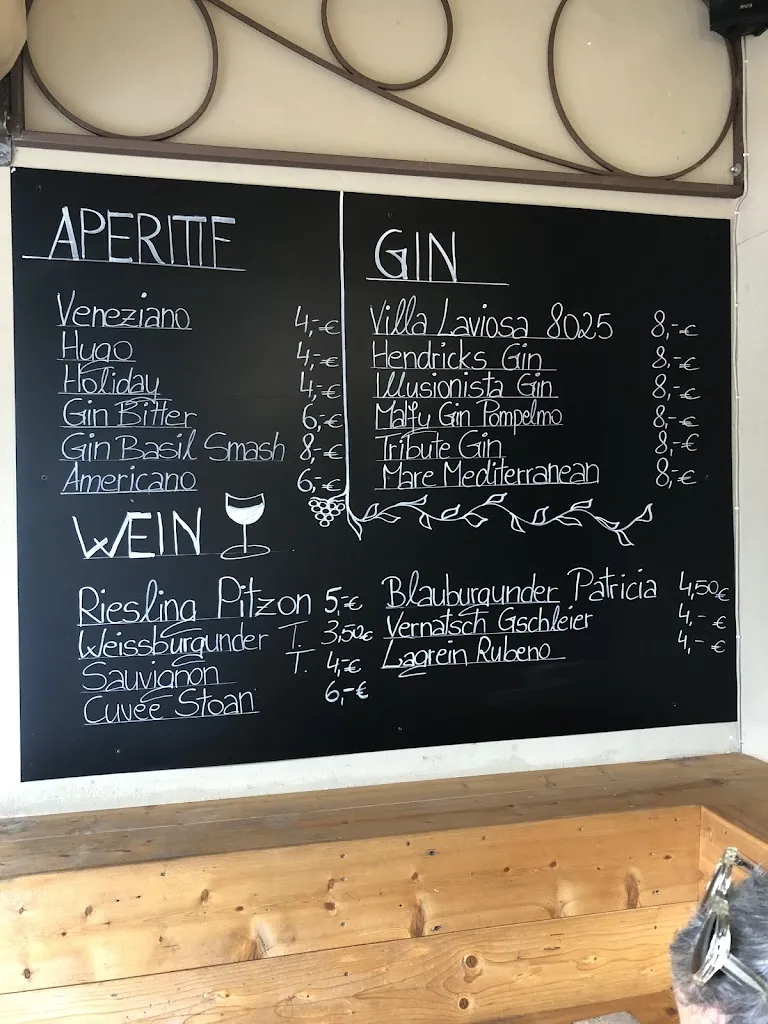 APERITIF
Veneziano 4,-€
Hugo 4,-€
Holiday 4,-€
Gin Bitter 6,-€
Gin Basil Smash 8,-€
Americano 6,-€
GIN
Villa Laviosa 8025 8,-€
Hendricks Gin 8,-€
Illusionista Gin 8,-€
Malfy Gin Pompelmo 8,-€
Tribute Gin 8,-€
Mare Mediterranean 8,-€
WEIN
Riesling Pitzon 5,-€
Weissburgunder T. 3,50€
Sauvignon T. 4,-€
Cuvée Stoan 6,-€
Blauburgunder Patricia 4,50€
Vernatsch Gschleier 4,-€
Lagrein Rubeno 4,-€